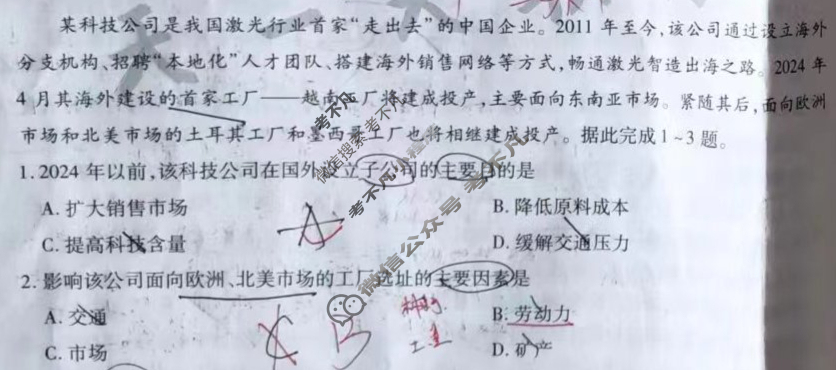 某科技公司是我国激光行业首家“走出去”的中国企业。2011年至今,该公司通过设立海外
分支机构、招聘“本地化”人才团队、搭建海外销售网络等方式,畅通激光智造出海之路。2024年
4月其海外建设的首家工厂——越南工厂将建成投产,主要面向东南亚市场。紧随其后,面向欧洲
市场和北美市场的土耳其工厂和墨西哥工厂也将相继建成投产。据此完成1~3题。
1.2024年以前,该科技公司在国外设立子公司的主要目的是
A.扩大销售市场
B.降低原料成本
C.提高科技含量
D.缓解交通压力
2.影响该公司面向欧洲、北美市场的工厂选址的主要因素是
A.交通
B.劳动力
C.市场
D.矿产
A
C
B
微信搜索考不凡
微信公众号 考不凡